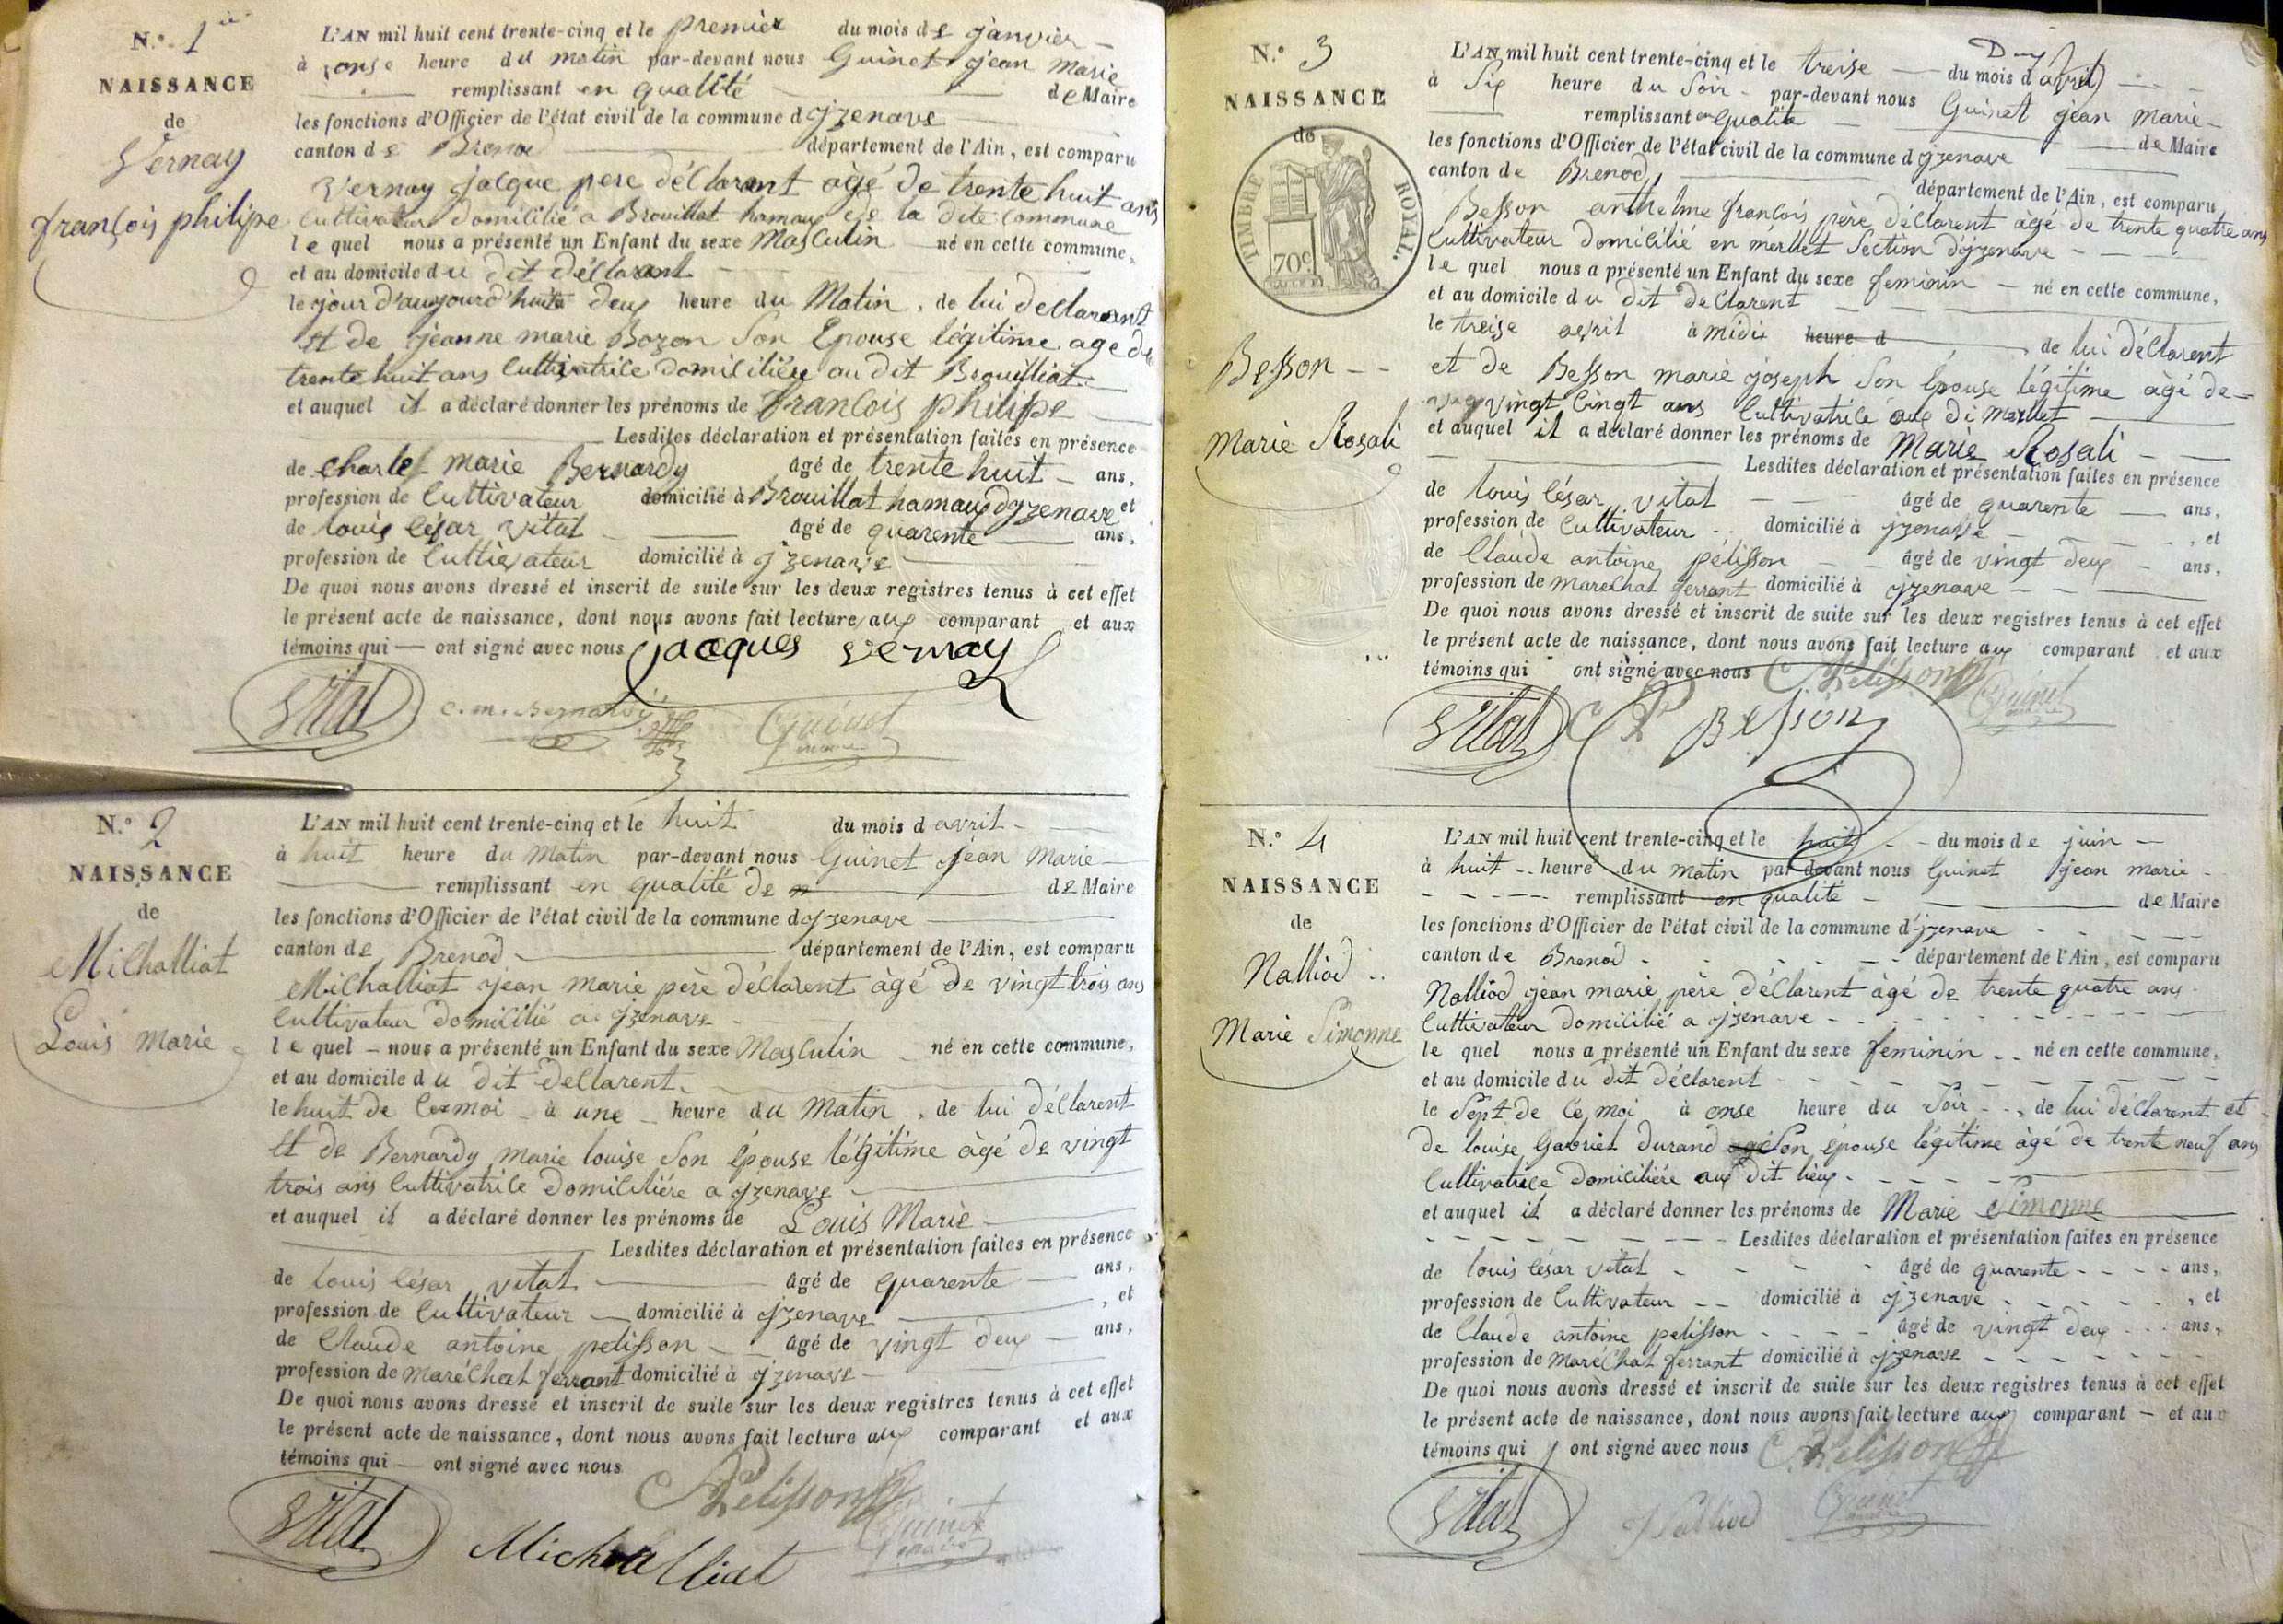 N.º 1
NAISSANCE
de
Vernay
françois philipe
L'AN mil huit cent trente-cinq et le premier du mois de janvier
à onse heure du matin par-devant nous Guinet jean marie
remplissant en qualité de Maire
les fonctions d'Officier de l'état civil de la commune d'jzenave
canton de Brenod département de l'Ain, est comparu
Vernay jacque pere déclarent âgé de trente huit ans
Cultivateur domicilié a Brouillat hamaux de la dite commune
lequel nous a présenté un Enfant du sexe Masculin né en cette commune,
et au domicile du dit déclarent
le jour d'aujourd'huit à deux heure du Matin, de lui declarant
et de jeanne marie Bozon son Epouse légitime age de
trente huit ans cultivatrice domicilière au dit Brouilliat
et auquel il a déclaré donner les prénoms de françois philipe
Lesdites déclaration et présentation faites en présence
de Charles marie Bernardy âgé de trente huit ans,
profession de Cultivateur domicilié à Brouillat hamaux d'yzenave et
de louis César vital âgé de quarente ans,
profession de Cultivateur domicilié à jzenave
De quoi nous avons dressé et inscrit de suite sur les deux registres tenus à cet effet
le présent acte de naissance, dont nous avons fait lecture aux comparant et aux
témoins qui ont signé avec nous jacques vernay
Vital c. m. Bernardy Guinet
maire
N.º 2
NAISSANCE
de
Milhalliat
Louis Marie
L'AN mil huit cent trente-cinq et le huit du mois d avril
à huit heure du Matin par-devant nous Guinet jean Marie
remplissant en qualité de de Maire
les fonctions d'Officier de l'état civil de la commune d jzenave
canton de Brenod département de l'Ain, est comparu
Milhalliat jean marie père déclarent âgé de vingt trois ans
Cultivateur domicilié a jzenave
lequel nous a présenté un Enfant du sexe Masculin né en cette commune,
et au domicile du dit declarent
le huit de ce moi à une heure du Matin, de lui déclarent
et de Bernardy marie louise son épouse légitime âgé de vingt
trois ans Cultivatrice domicilière a jzenave
et auquel il a déclaré donner les prénoms de Louis Marie
Lesdites déclaration et présentation faites en présence
de louis César vital âgé de quarente ans,
profession de Cultivateur domicilié à jzenave, et
de Claude antoine pelisson âgé de vingt deux ans,
profession de Maréchal ferrant domicilié à jzenave
De quoi nous avons dressé et inscrit de suite sur les deux registres tenus à cet effet
le présent acte de naissance, dont nous avons fait lecture aux comparant et aux
témoins qui ont signé avec nous
Pelisson
Vital Michalliat Guinet
maire
N.º 3
NAISSANCE
de
TIMBRE ROYAL.
70c
Besson
Marie Rosali
L'AN mil huit cent trente-cinq et le treise du mois d avril
à Six heure du Soir par-devant nous Guinet jean marie
remplissant en qualité de Maire
les fonctions d'Officier de l'état civil de la commune d jzenave
canton de Brenod, département de l'Ain, est comparu
Besson anthelme françois père déclarent âgé de trente quatre ans
Cultivateur domicilié en merllet Section d'jzenave
lequel nous a présenté un Enfant du sexe feminin né en cette commune,
et au domicile du dit declarent
le treise avril à midi heure d de lui déclarent
et de Besson marie joseph Son épouse légitime âgé de
vingt Cingt ans Cultivatrice aux di merllet
et auquel il a déclaré donner les prénoms de Marie Rosali
Lesdites déclaration et présentation faites en présence
de louis César vital âgé de quarente ans,
profession de Cultivateur domicilié à jzenave, et
de Claude antoine pélisson âgé de vingt deux ans,
profession de marechal ferrant domicilié à jzenave
De quoi nous avons dressé et inscrit de suite sur les deux registres tenus à cet effet
le présent acte de naissance, dont nous avons fait lecture aux comparant et aux
témoins qui ont signé avec nous Pelisson
Vital Besson Guinet
N.º 4
NAISSANCE
de
Nalliod
Marie Simonne
L'AN mil huit cent trente-cinq et le huit du mois de juin
à huit heure du matin par devant nous Guinet jean marie
remplissant en qualité de Maire
les fonctions d'Officier de l'état civil de la commune d'jzenave
canton de Brenod département de l'Ain, est comparu
Nalliod jean marie père déclarent âgé de trente quatre ans
Cultivateur domicilié a jzenave
le quel nous a présenté un Enfant du sexe feminin né en cette commune,
et au domicile du dit déclarent
le Sept de ce moi à onse heure du Soir, de lui déclarent et
de louise Gabriel Durand Son épouse légitime âgé de trente neuf ans
Cultivatrice domicilière aux dit lieux
et auquel il a déclaré donner les prénoms de Marie Simonne
Lesdites déclaration et présentation faites en présence
de louis César vital âgé de quarente ans,
profession de Cultivateur domicilié à jzenave, et
de Claude antoine pelisson âgé de vingt deux ans,
profession de Maréchal ferrant domicilié à jzenave
De quoi nous avons dressé et inscrit de suite sur les deux registres tenus à cet effet
le présent acte de naissance, dont nous avons fait lecture aux comparant et aux
témoins qui ont signé avec nous Pelisson
Vital Nalliod Guinet